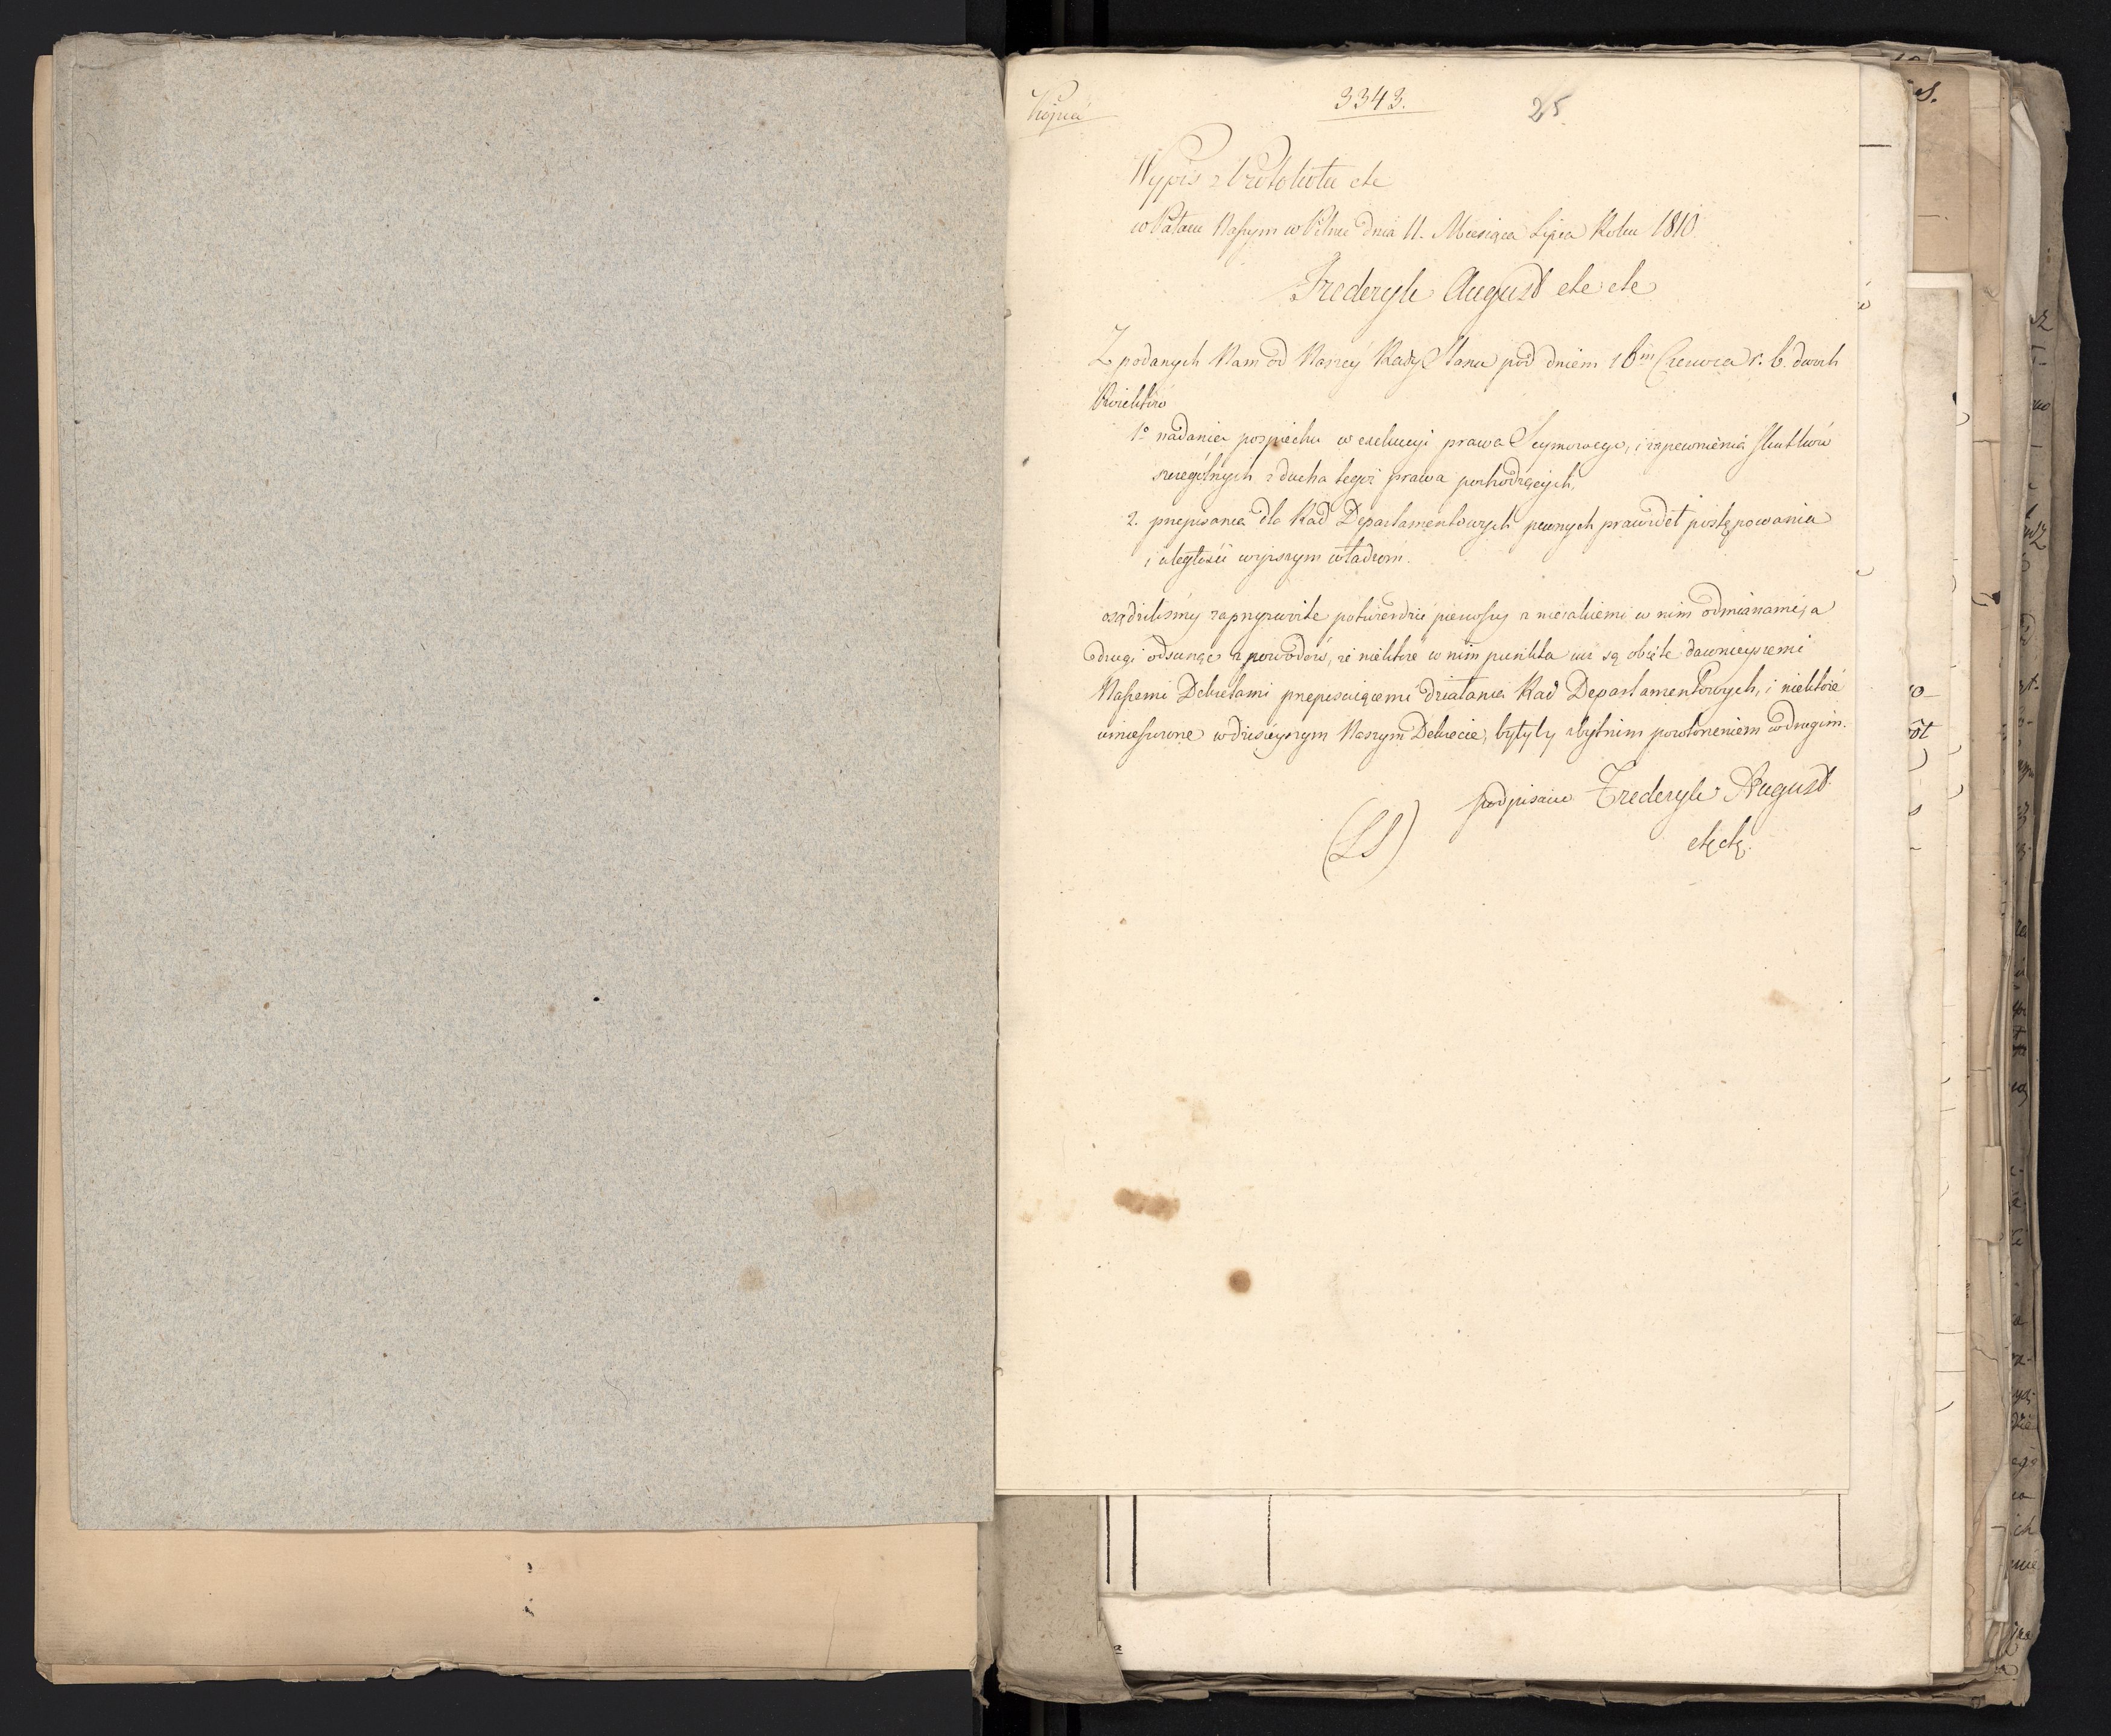 Kopia
3343.
25
Wypis z Protokołu etc
w Pałacu Naszym w Pilnic dnia 11. Miesiąca Lipca Roku 1810
Frederyk August etc etc
Z podanych Nam od Naszey Rady Stanu pod dniem 16m Czerwca r. b. dwóch
Proiektów
1o nadania pospiechu w exekucyi prawa Seymowego, i zapewnienia skutków
szczególnych z ducha tegoż prawa pochodzących,
2. przepisania dla Rad Departamentowych pewnych prawideł postępowania
i uległości wyższym władzom.
osądziliśmy za przyzwoite potwierdzić pierwszy z nieiakiemi w nim odmianami, a
drugi odsunąć z powodów, że niektóre w nim punkta iuż są obięte dawnieyszemi
Naszemi Dekretami przepisuiącemi działania Rad Departamentowych, i niektóre
umieszczone w dzisieyszym Naszym Dekrecie, byłyby zbytnim powtórzeniem w drugim.
podpisano Frederyk August
(LS)
etc etc.